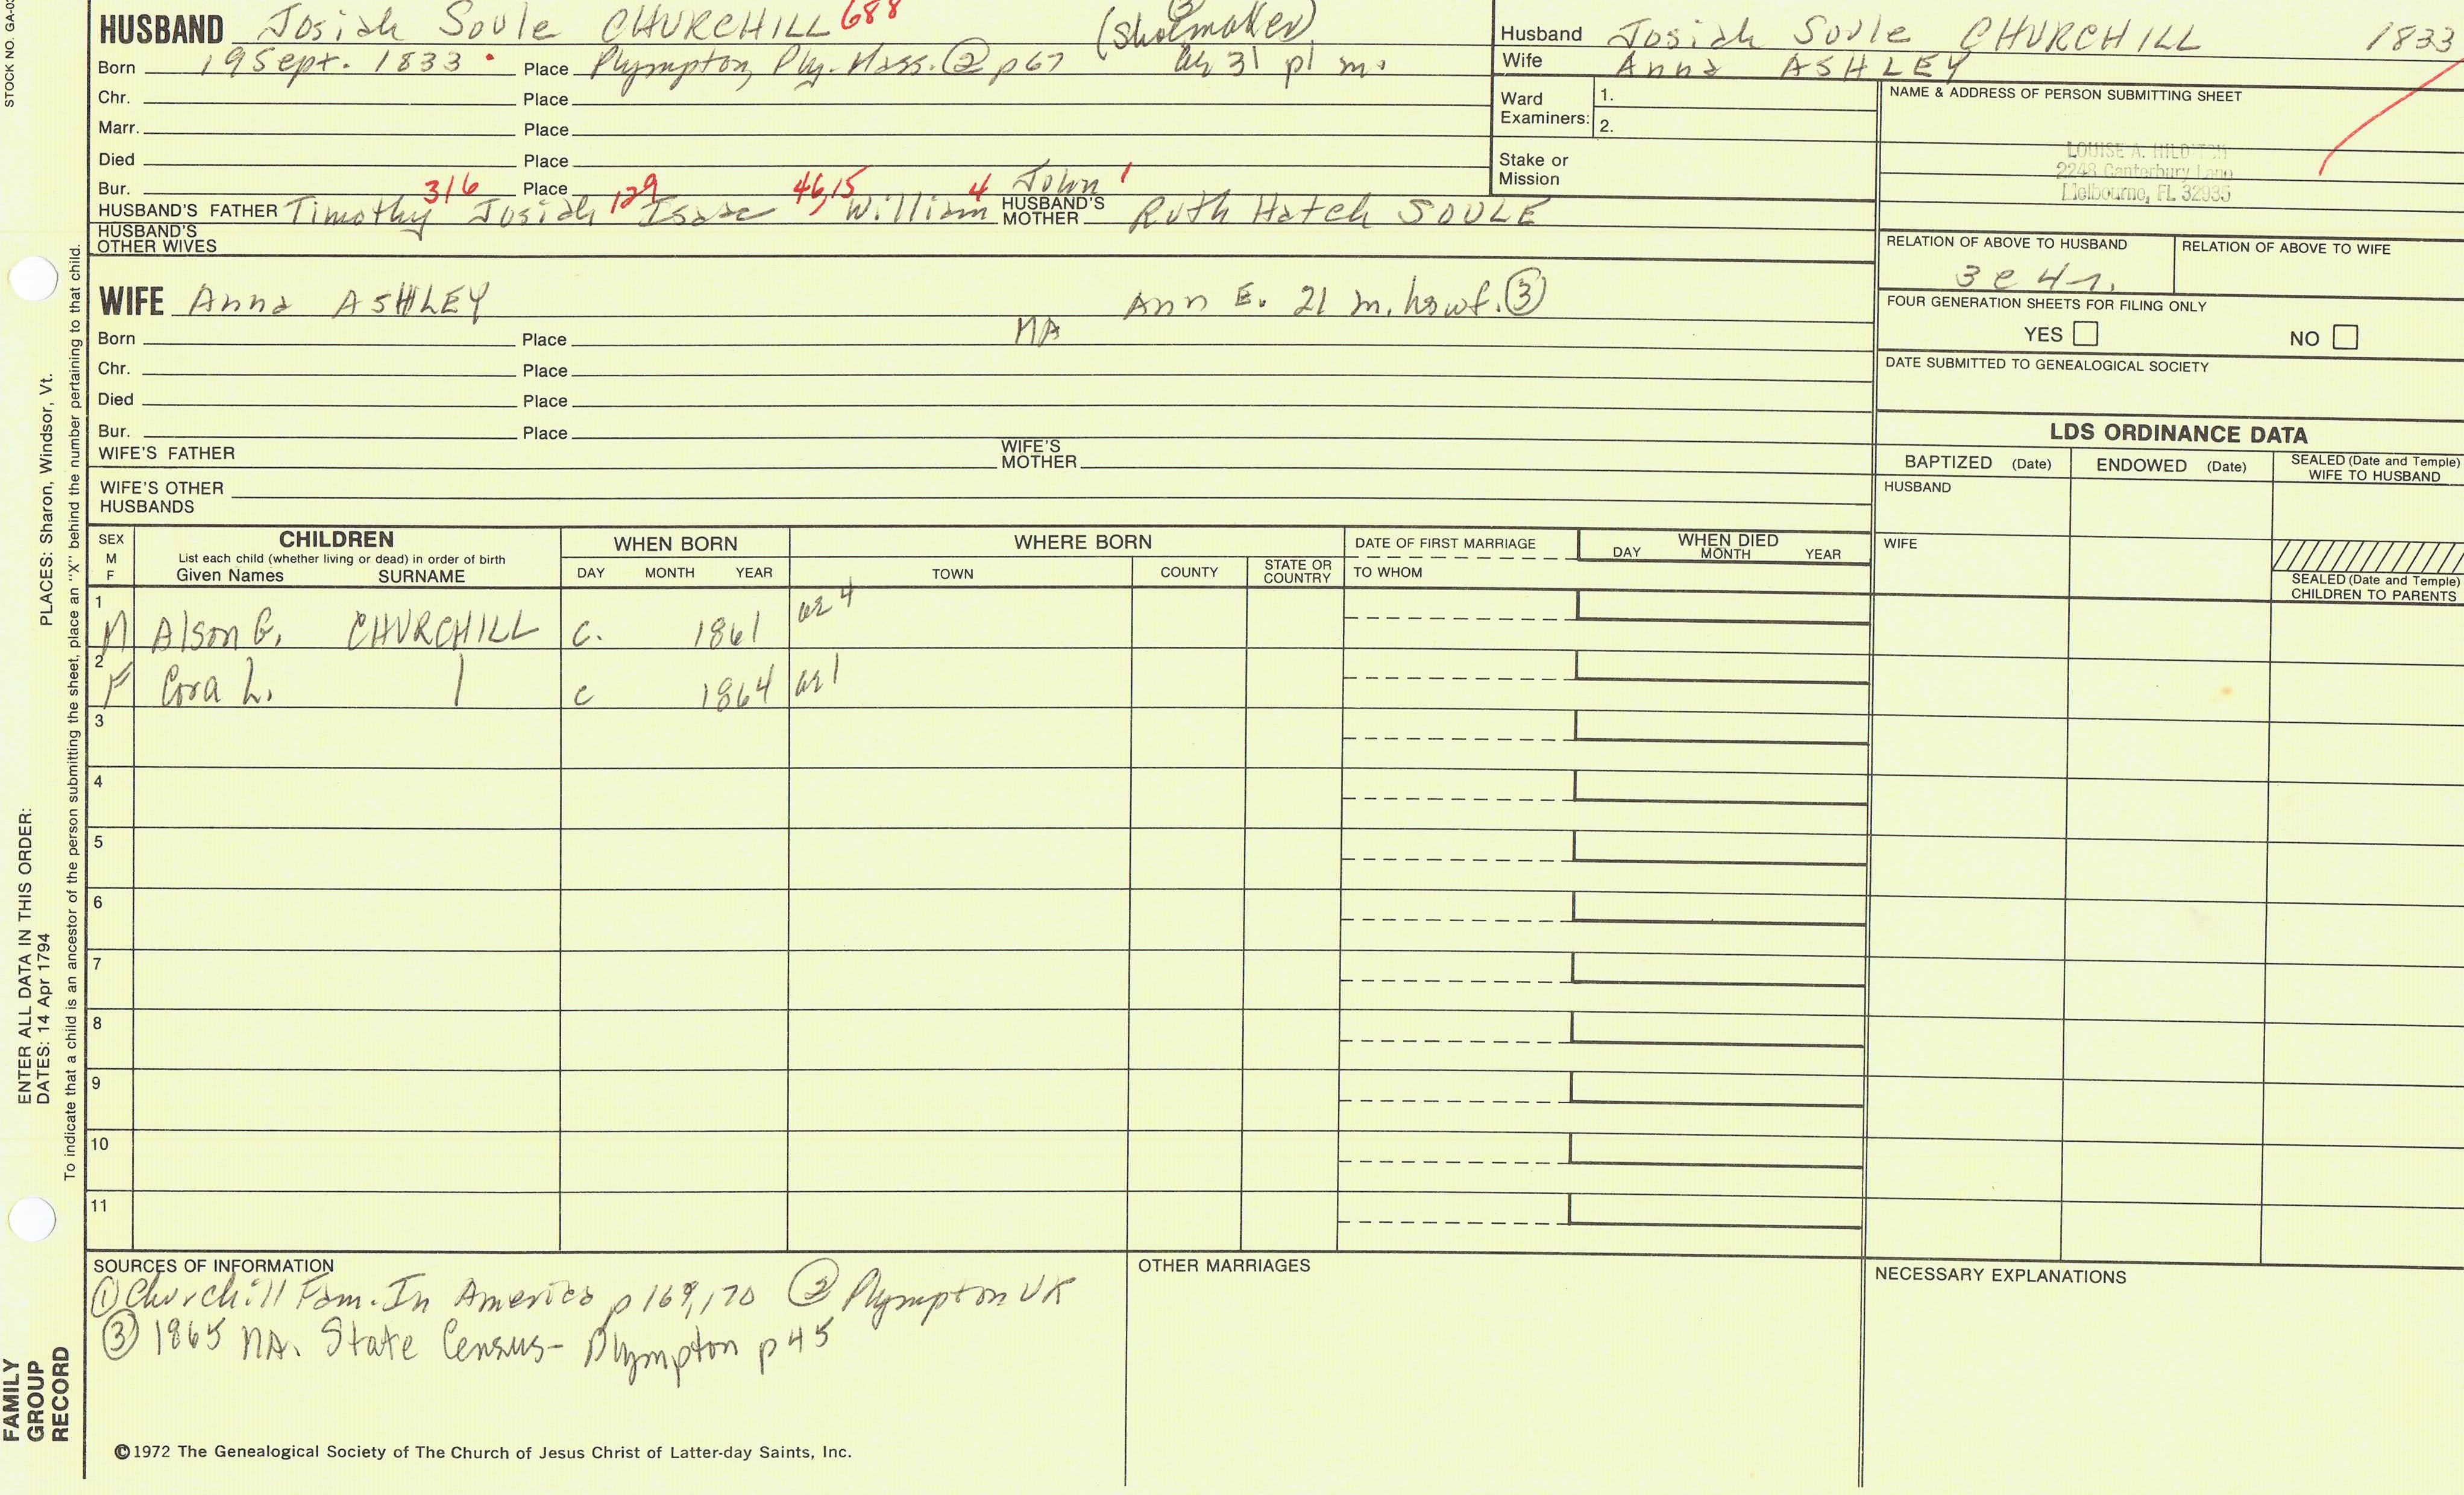 STOCK NO. GA-0
HUSBAND Josiah Soule CHURCHILL 688 (Shoemaker)
Born 19 Sept. 1833 Place Plympton, Ply. Mass. ② p 67 31 pl m.
Chr. Place
Marr. Place
Died Place
Bur. Place
316 129 46,15 4 John 1
HUSBAND'S FATHER Timothy Josiah Isaac William HUSBAND'S MOTHER Ruth Hatch SOULE
HUSBAND'S OTHER WIVES
Husband Josiah Soule CHURCHILL 1833
Wife Anna ASHLEY
Ward Examiners: 1.
2.
Stake or Mission
NAME & ADDRESS OF PERSON SUBMITTING SHEET
LOUISE A.
2248 Canterbury Lane
Melbourne, FL 32935
RELATION OF ABOVE TO HUSBAND
3 c 4 r.
RELATION OF ABOVE TO WIFE
FOUR GENERATION SHEETS FOR FILING ONLY
YES NO
DATE SUBMITTED TO GENEALOGICAL SOCIETY
WIFE Anna ASHLEY Ann E. 21 m. hswf. ③
Born Place MA
Chr. Place
Died Place
Bur. Place
WIFE'S FATHER WIFE'S MOTHER
WIFE'S OTHER HUSBANDS
LDS ORDINANCE DATA
BAPTIZED (Date) ENDOWED (Date) SEALED (Date and Temple) WIFE TO HUSBAND
HUSBAND
WIFE
SEALED (Date and Temple) CHILDREN TO PARENTS
SEX M F
CHILDREN
List each child (whether living or dead) in order of birth
Given Names SURNAME
WHEN BORN
DAY MONTH YEAR
WHERE BORN
TOWN COUNTY STATE OR COUNTRY
DATE OF FIRST MARRIAGE
TO WHOM
WHEN DIED
DAY MONTH YEAR
1 M Alson G. CHURCHILL c. 1861 4
2 F Cora L. | c 1864 1
3
4
5
6
7
8
9
10
11
SOURCES OF INFORMATION
① Churchill Fam. In America p 169,170 ② Plympton VR
③ 1865 MA. State Census- Plympton p 45
OTHER MARRIAGES
NECESSARY EXPLANATIONS
©1972 The Genealogical Society of The Church of Jesus Christ of Latter-day Saints, Inc.
PLACES: Sharon, Windsor, Vt.
ENTER ALL DATA IN THIS ORDER:
DATES: 14 Apr 1794
To indicate that a child is an ancestor of the person submitting the sheet, place an "X" behind the number pertaining to that child.
FAMILY
GROUP
RECORD